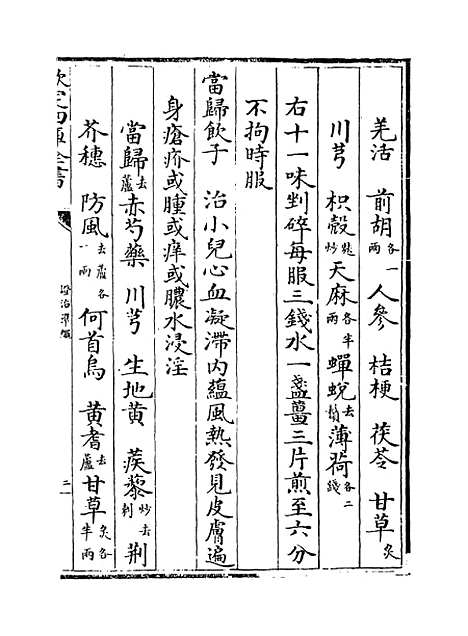 羌活　前胡各一兩　人參　桔梗　茯苓　甘草炙
川芎　枳殼麩炒　天麻各半兩　蟬蛻去頭　薄荷各二錢
右十一味剉碎每服三錢水一盞薑三片煎至六分
不拘時服
當歸飲子　治小兒心血凝滯内蘊風熱發見皮膚遍
身瘡疥或腫或痒或膿水浸淫
當歸去蘆　赤芍藥　川芎　生地黄　蒺藜炒去刺　荆
芥穗　防風去蘆各一兩　何首烏　黄耆去蘆　甘草炙各半兩
欽定四庫全書
證治準繩
二